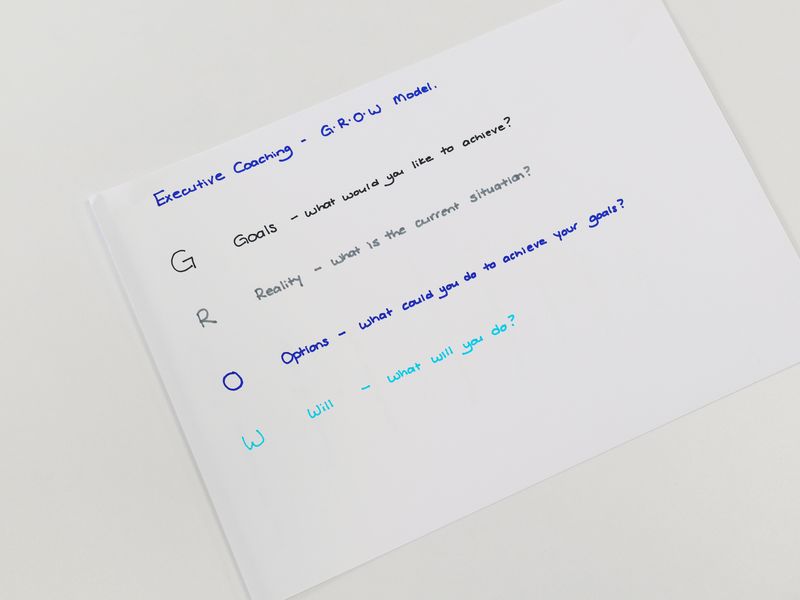 Executive Coaching - G.R.O.W Model.
G Goals - what would you like to achieve?
R Reality - what is the current situation?
O Options - what could you do to achieve your goals?
W Will - what will you do?